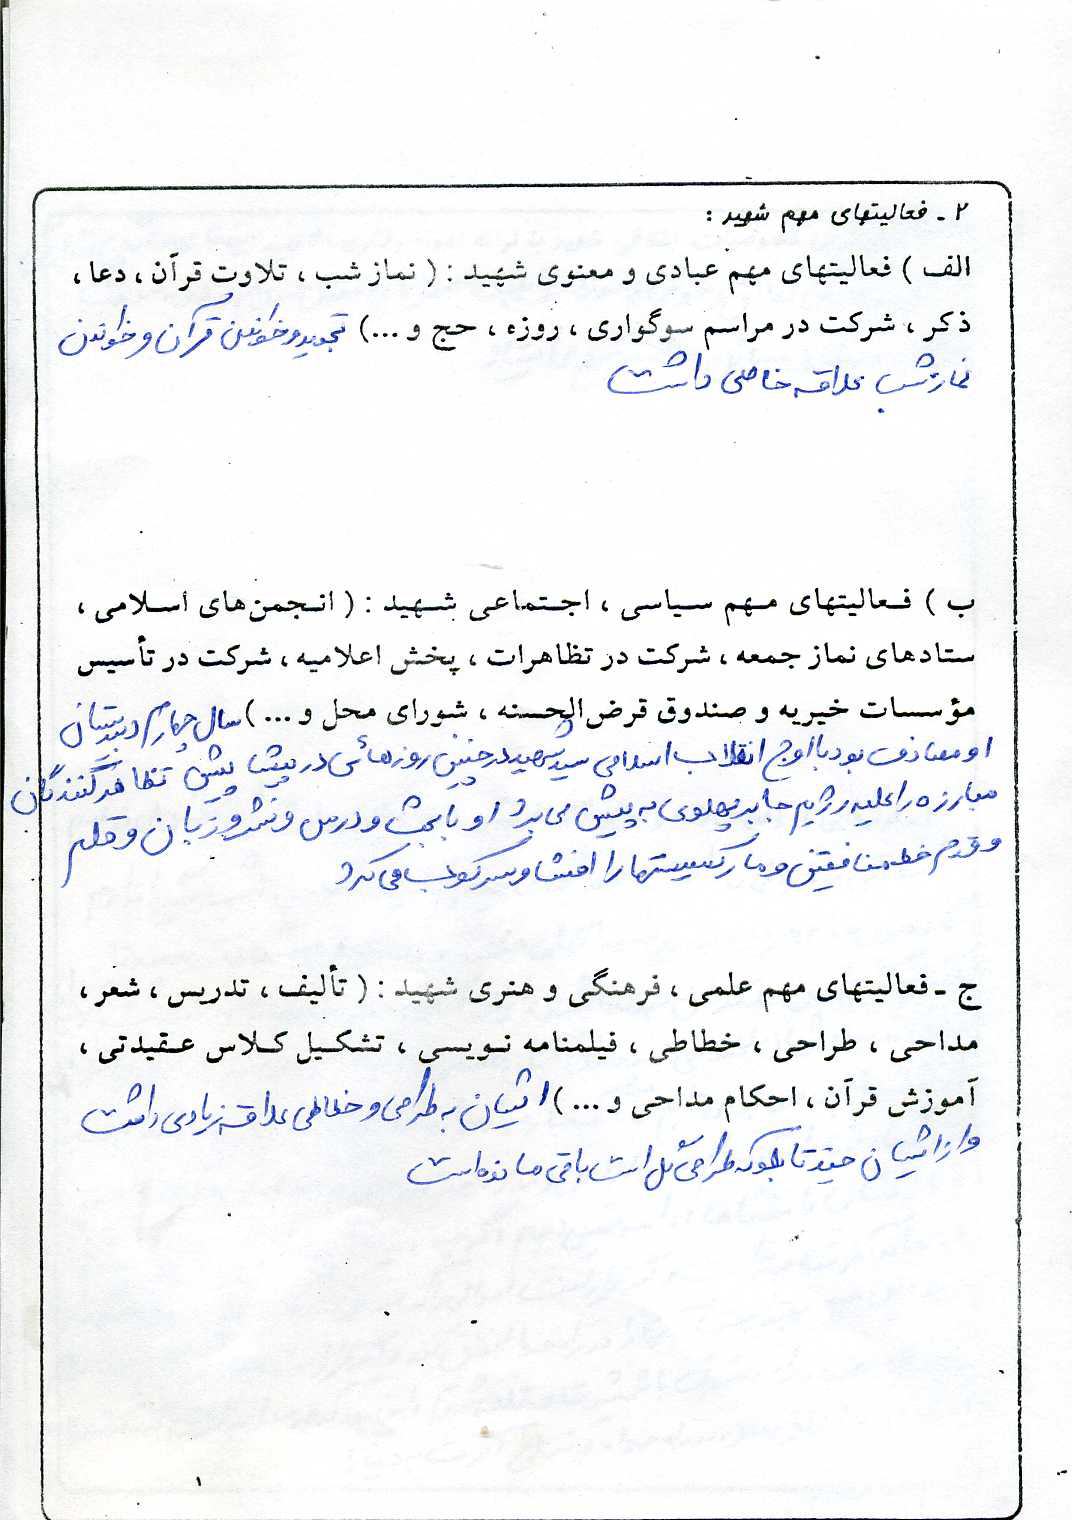 ۲ - فعالیتهای مهم شهید :
الف ) فعالیتهای مهم عبادی و معنوی شهید : ( نماز شب ، تلاوت قرآن ، دعا ،
ذکر ، شرکت در مراسم سوگواری ، روزه ، حج و ...) تجوید و خواندن قرآن و خواندن
نماز شب علاقه خاصی داشت
ب ) فعالیتهای مهم سیاسی ، اجتماعی شهید : ( انجمن‌های اسلامی ،
ستادهای نماز جمعه ، شرکت در تظاهرات ، پخش اعلامیه ، شرکت در تأسیس
مؤسسات خیریه و صندوق قرض‌الحسنه ، شورای محل و ... ) سال چهارم دبیرستان
او مصادف بود با اوج انقلاب اسلامی شهید در چنین روزهائی در پیشاپیش تظاهرکنندگان
مبارزه را علیه رژیم جابر پهلوی به پیش می برد او با بحث و درس و نشر و زبان و قلم
و قدم خط منافقین و مارکسیستها را افشا و سرکوب می کرد
ج - فعالیتهای مهم علمی ، فرهنگی و هنری شهید : ( تألیف ، تدریس ، شعر ،
مداحی ، طراحی ، خطاطی ، فیلمنامه نویسی ، تشکیل کلاس عقیدتی ،
آموزش قرآن ، احکام مداحی و ... ) ایشان به طراحی و خطاطی علاقه زیادی داشت
و از ایشان چند تابلو که طراحی گل است باقی مانده است
۱